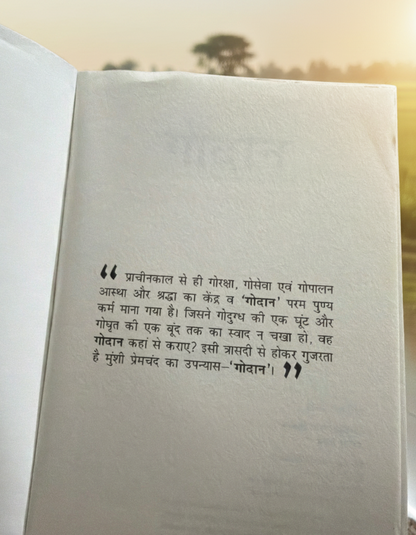 “ प्राचीनकाल से ही गोरक्षा, गोसेवा एवं गोपालन
आस्था और श्रद्धा का केंद्र व ‘गोदान’ परम पुण्य
कर्म माना गया है। जिसने गोदुग्ध की एक घूंट और
गोघृत की एक बूंद तक का स्वाद न चखा हो, वह
गोदान कहां से कराए? इसी त्रासदी से होकर गुजरता
है मुंशी प्रेमचंद का उपन्यास–‘गोदान’। ”